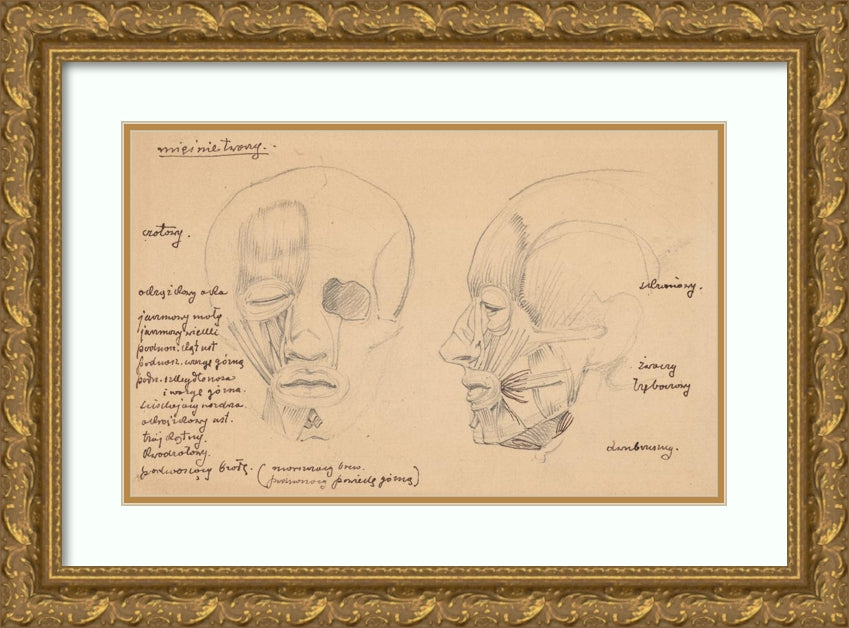 mięśnie twarzy.
czołowy.
okrężkowy oka
jarzmowy mały
jarzmowy wielki
podnosz. kąt ust
podnosz. wargę górną
podn. skrzydło nosa
i wargę górną.
ściskający nozdrza.
okrężkowy ust.
trójkątny.
kwadratowy.
podnoszący brodę.
(marszczący brew.
podnoszący powiekę górną)
skroniowy.
żwacz
trębaczowy
dwubrzuśny.